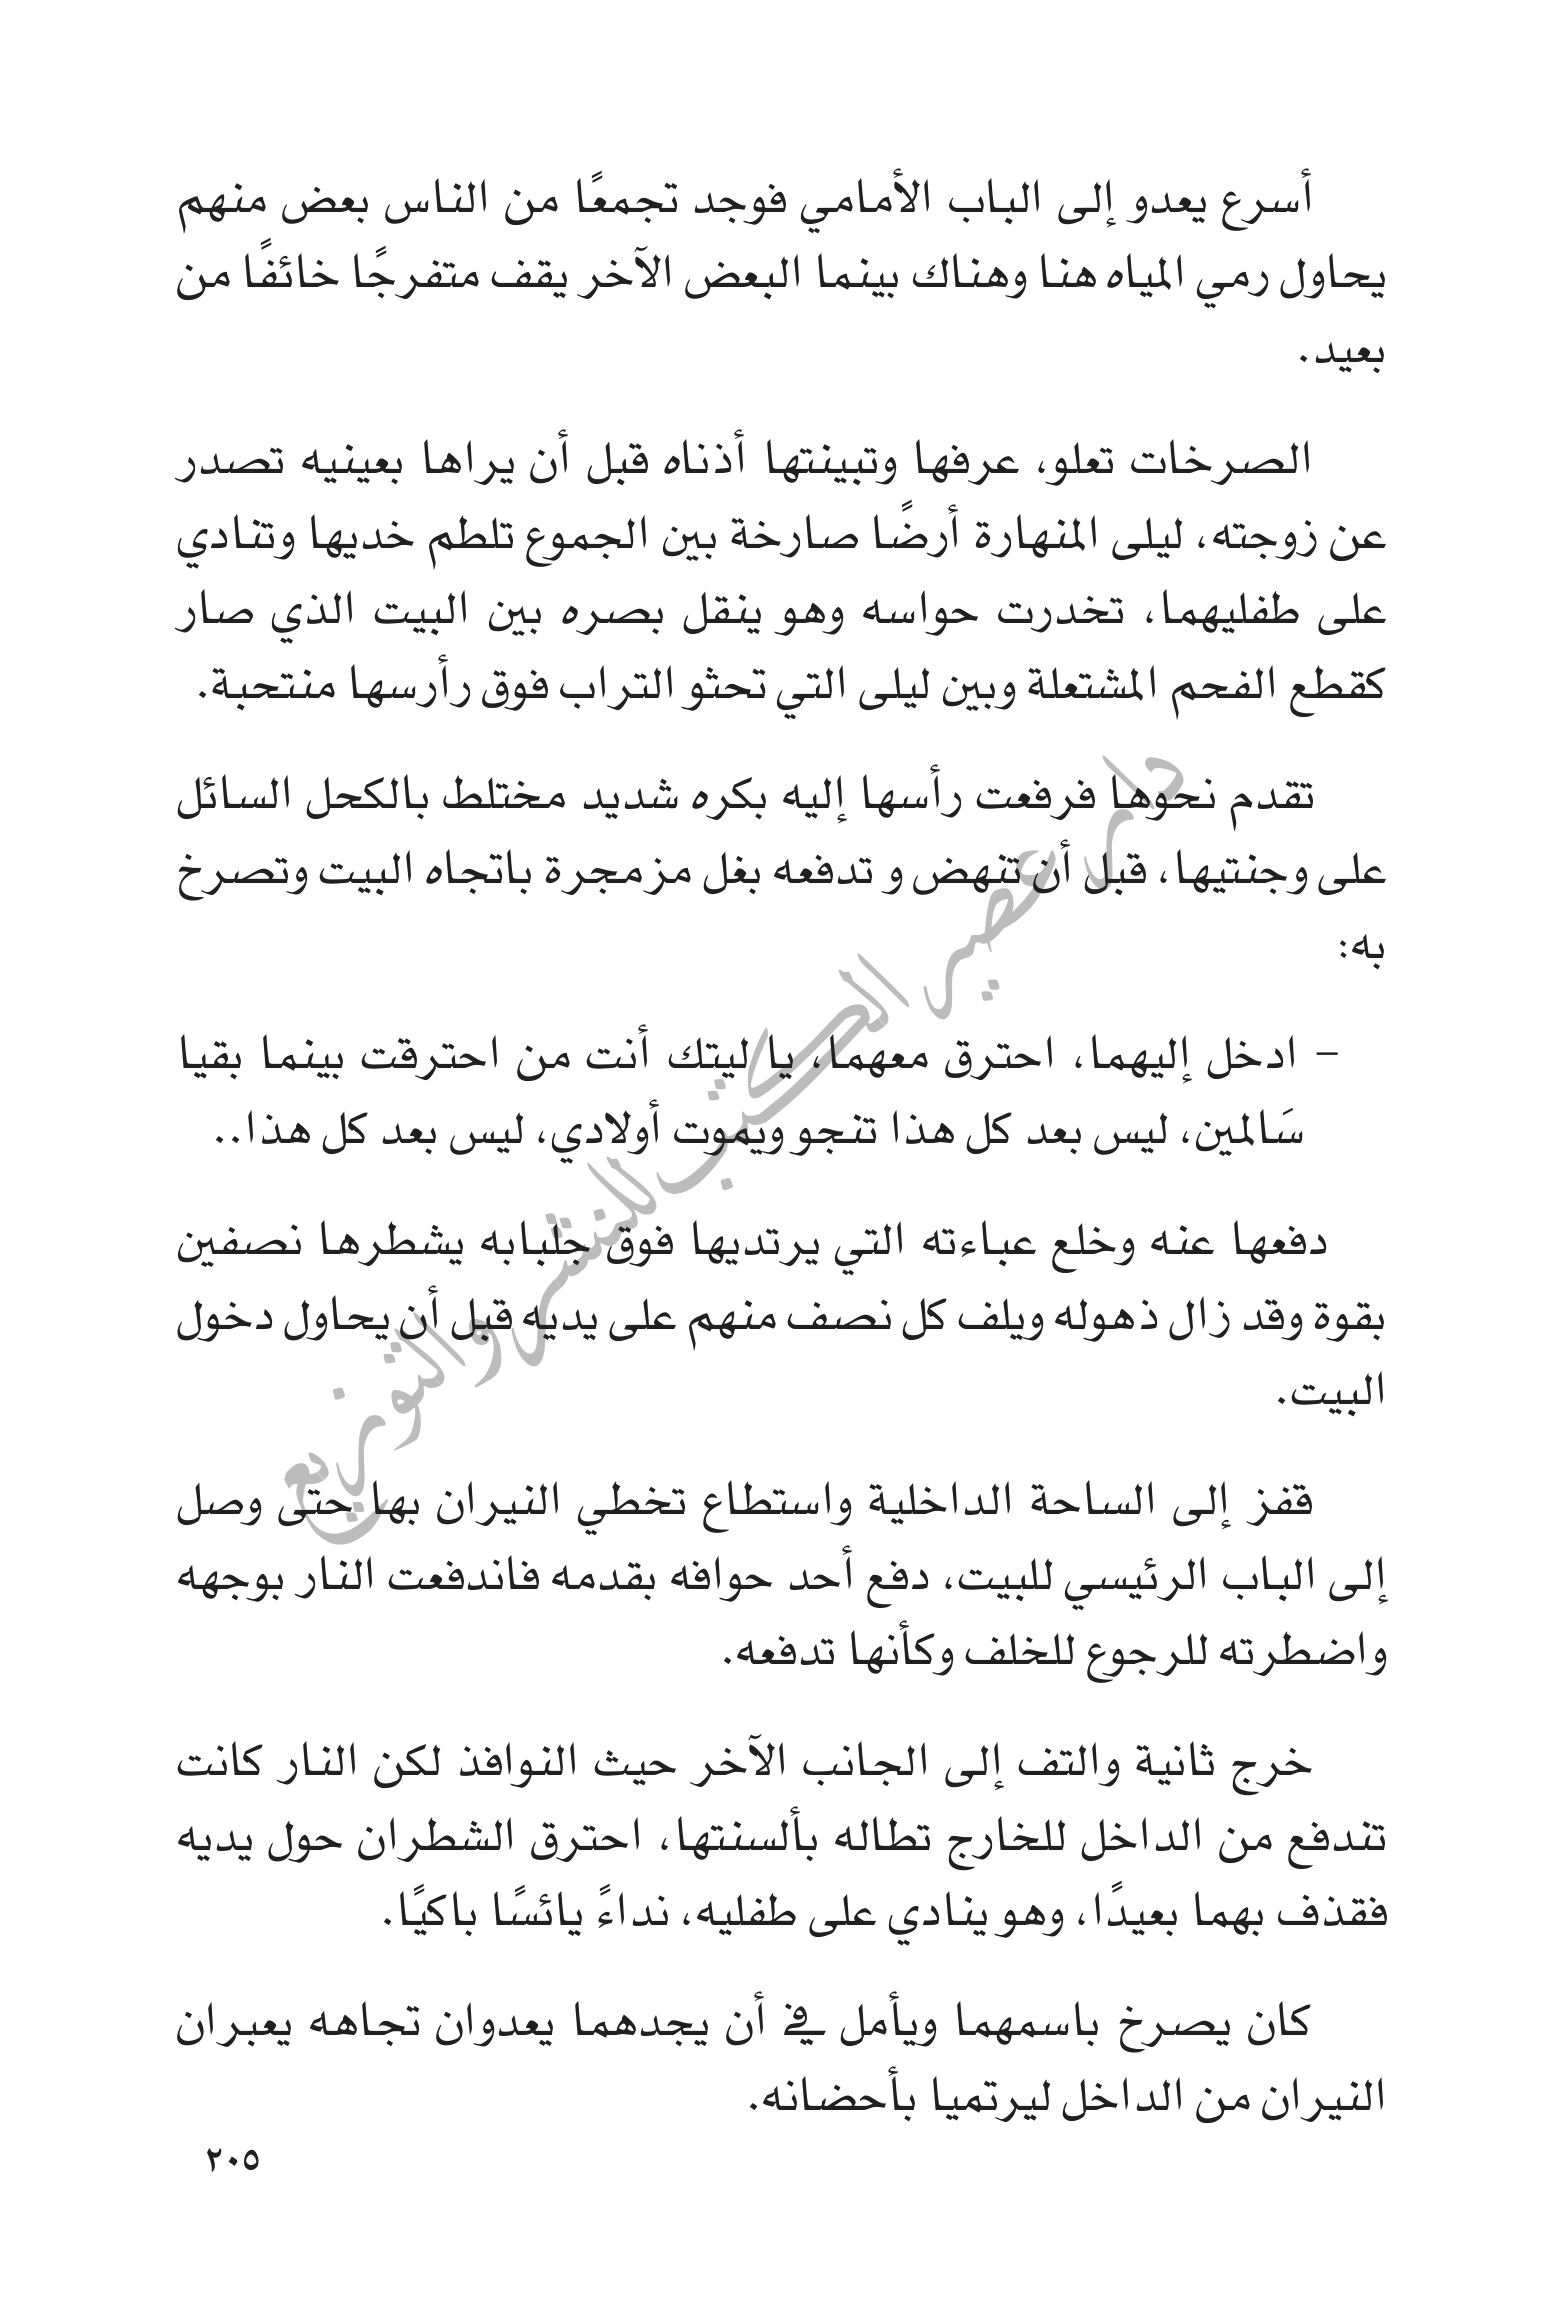 أسرع يعدو إلى الباب الأمامي فوجد تجمعًا من الناس بعض منهم
يحاول رمي المياه هنا وهناك بينما البعض الآخر يقف متفرجًا خائفًا من
بعيد.
الصرخات تعلو، عرفها وتبينتها أذناه قبل أن يراها بعينيه تصدر
عن زوجته، ليلى المنهارة أرضًا صارخة بين الجموع تلطم خديها وتنادي
على طفليهما، تخدرت حواسه وهو ينقل بصره بين البيت الذي صار
كقطع الفحم المشتعلة وبين ليلى التي تحثو التراب فوق رأرسها منتحبة.
تقدم نحوها فرفعت رأسها إليه بكره شديد مختلط بالكحل السائل
على وجنتيها، قبل أن تنهض و تدفعه بغل مزمجرة باتجاه البيت وتصرخ
به:
– ادخل إليهما، احترق معهما، يا ليتك أنت من احترقت بينما بقيا
سَالمين، ليس بعد كل هذا تنجو ويموت أولادي، ليس بعد كل هذا..
دفعها عنه وخلع عباءته التي يرتديها فوق جلبابه يشطرها نصفين
بقوة وقد زال ذهوله ويلف كل نصف منهم على يديه قبل أن يحاول دخول
البيت.
قفز إلى الساحة الداخلية واستطاع تخطي النيران بها حتى وصل
إلى الباب الرئيسي للبيت، دفع أحد حوافه بقدمه فاندفعت النار بوجهه
واضطرته للرجوع للخلف وكأنها تدفعه.
خرج ثانية والتف إلى الجانب الآخر حيث النوافذ لكن النار كانت
تندفع من الداخل للخارج تطاله بألسنتها، احترق الشطران حول يديه
فقذف بهما بعيدًا، وهو ينادي على طفليه، نداءً يائسًا باكيًا.
كان يصرخ باسمهما ويأمل في أن يجدهما يعدوان تجاهه يعبران
النيران من الداخل ليرتميا بأحضانه.
٢٠٥
دار عصير الكتب للنشر والتوزيع